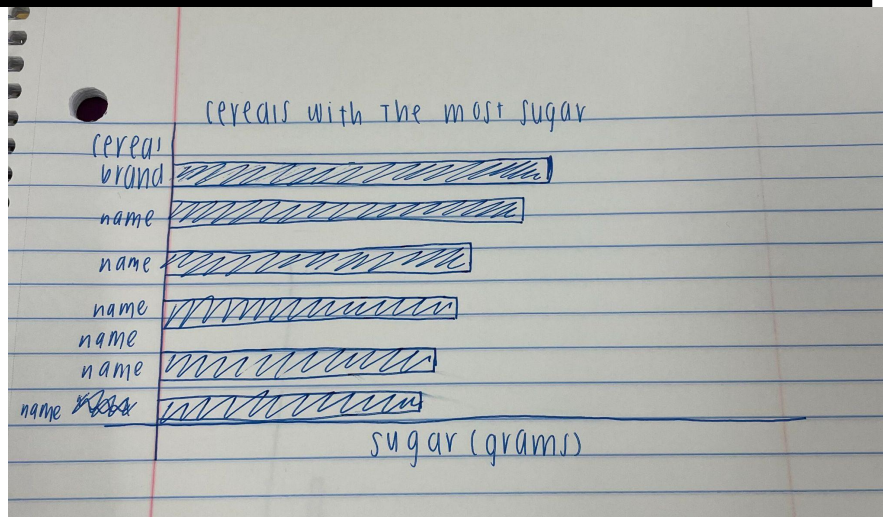 cereals with the most sugar
cereal
brand
name
name
name
name
name
name
sugar (grams)